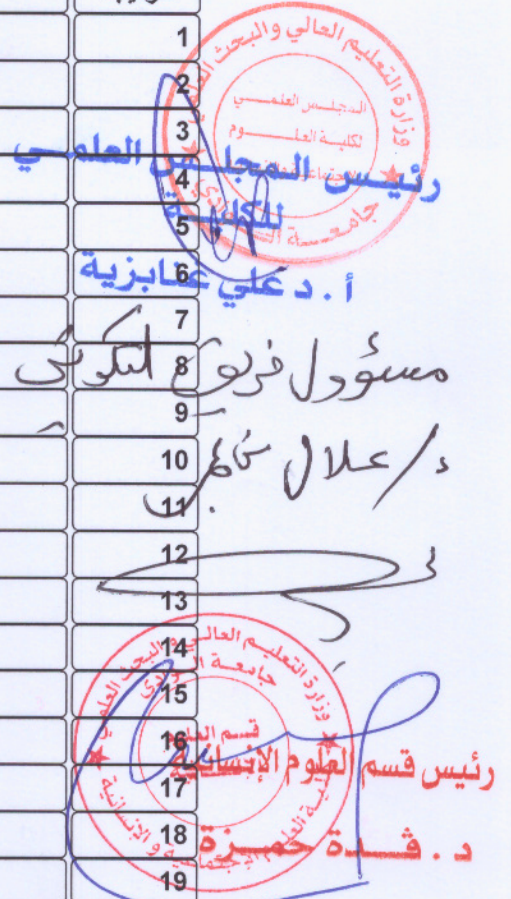 1
2
3
4
5
6
7
8
9
10
11
12
13
14
15
16
17
18
19
وزارة التعليم العالي والبحث العلمي
المجلس العلمي
لكلية العلوم
جامعة الوادي
رئيس المجلس العلمي
للكلية
أ. د علي عنابزية
مسؤول فريق التكوين
د/ علال
وزارة التعليم العالي والبحث العلمي
جامعة الوادي
قسم العلوم
كلية العلوم الإجتماعية و الإنسانية
رئيس قسم العلوم الإنسانية
د. قدة حمزة